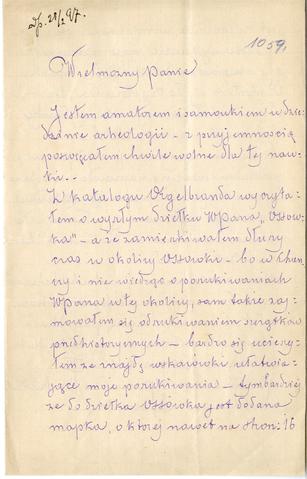 21/2 97.
1059.
Wielmożny Panie
Jestem amatorem i samoukiem w dzie-
dzinie archeologii – z przyjemnością
poświęcałem chwile wolne dla tej nau-
ki..
Z katalogu Orgelbranda wyczyta-
łem o wyszłym dziełku WPana „Ossów-
ka" – a że zamieszkiwałem dłuższy
czas w okolicy Ossówki – bo w
i nie wiedząc o poszukiwaniach
WPana w tej okolicy, sam także zaj-
mowałem się odszukiwaniem szczątków
przedhistorycznych – bardzo się ucieszy-
łem że znajdę wskazówki ułatwia-
jące moje poszukiwania – tymbardziej
że do dziełka Ossówka jest dodana
mapka, o której nawet na stron: 16